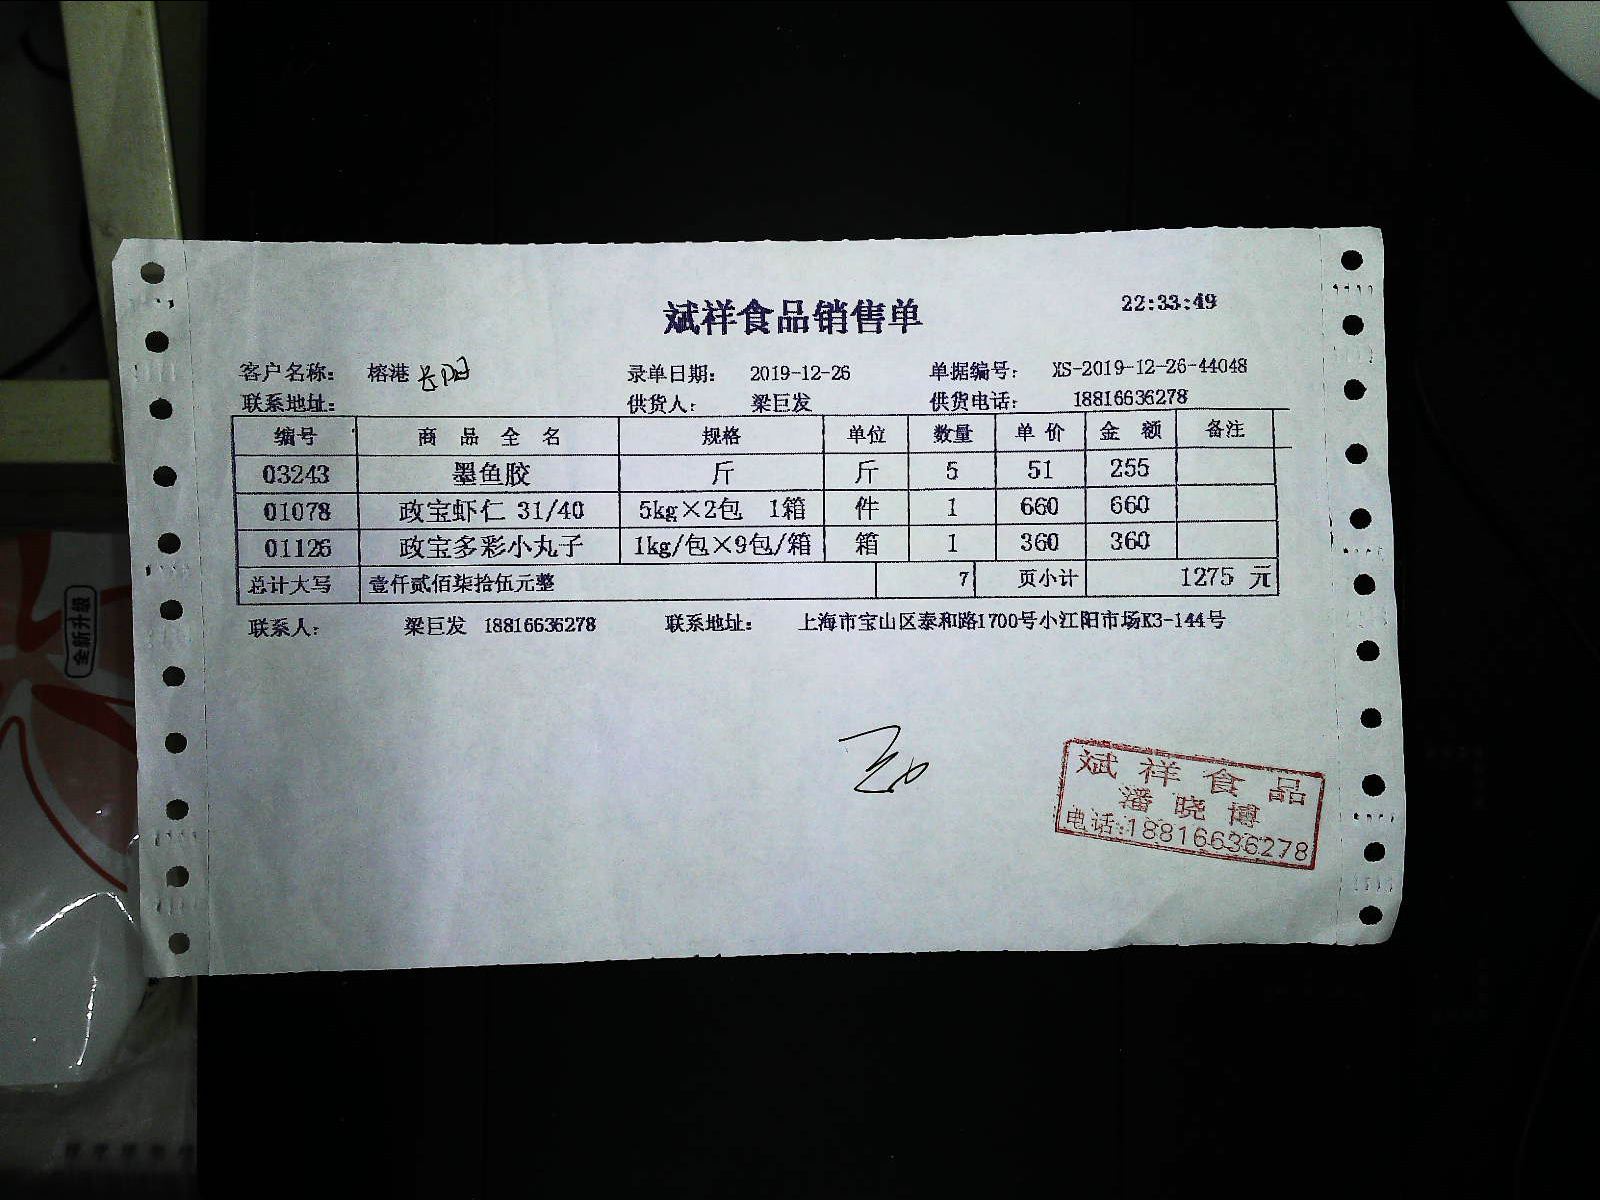 斌祥食品销售单 22:33:49
客户名称: 榕港 长阳 录单日期: 2019-12-26 单据编号: XS-2019-12-26-44048
联系地址: 供货人: 梁巨发 供货电话: 18816636278
编号 商品全名 规格 单位 数量 单价 金额 备注
03243 墨鱼胶 斤 斤 5 51 255
01078 政宝虾仁 31/40 5kg×2包 1箱 件 1 660 660
01126 政宝多彩小丸子 1kg/包×9包/箱 箱 1 360 360
总计大写 壹仟贰佰柒拾伍元整 7 页小计 1275 元
联系人: 梁巨发 18816636278 联系地址: 上海市宝山区泰和路1700号小江阳市场K3-144号
斌祥食品
潘晓博
电话:18816636278
全新升级